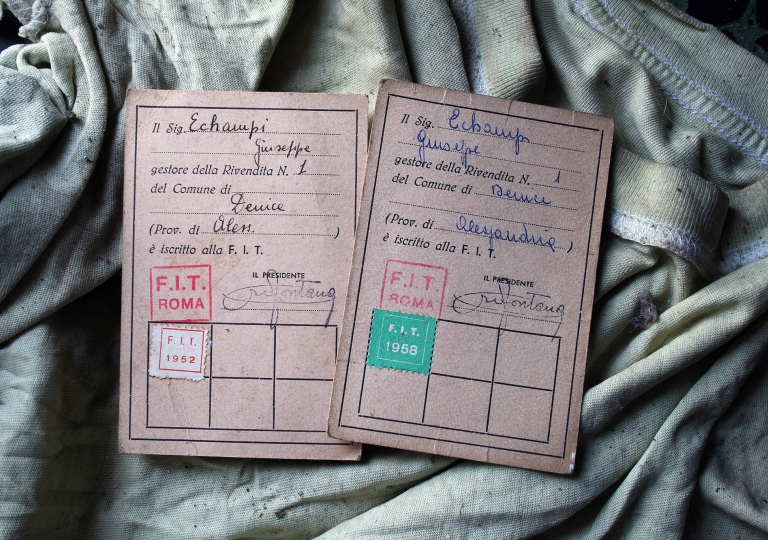 Il Sig. Echampi
Giuseppe
gestore della Rivendita N. 1
del Comune di
Denice
(Prov. di Aless. )
è iscritto alla F. I. T.
F.I.T.
ROMA
IL PRESIDENTE
F. I. T.
1952
Il Sig. Echamp
Giuseppe
gestore della Rivendita N. 1
del Comune di Denice
(Prov. di Alessandria )
è iscritto alla F. I. T.
F.I.T.
ROMA
IL PRESIDENTE
F. I. T.
1958